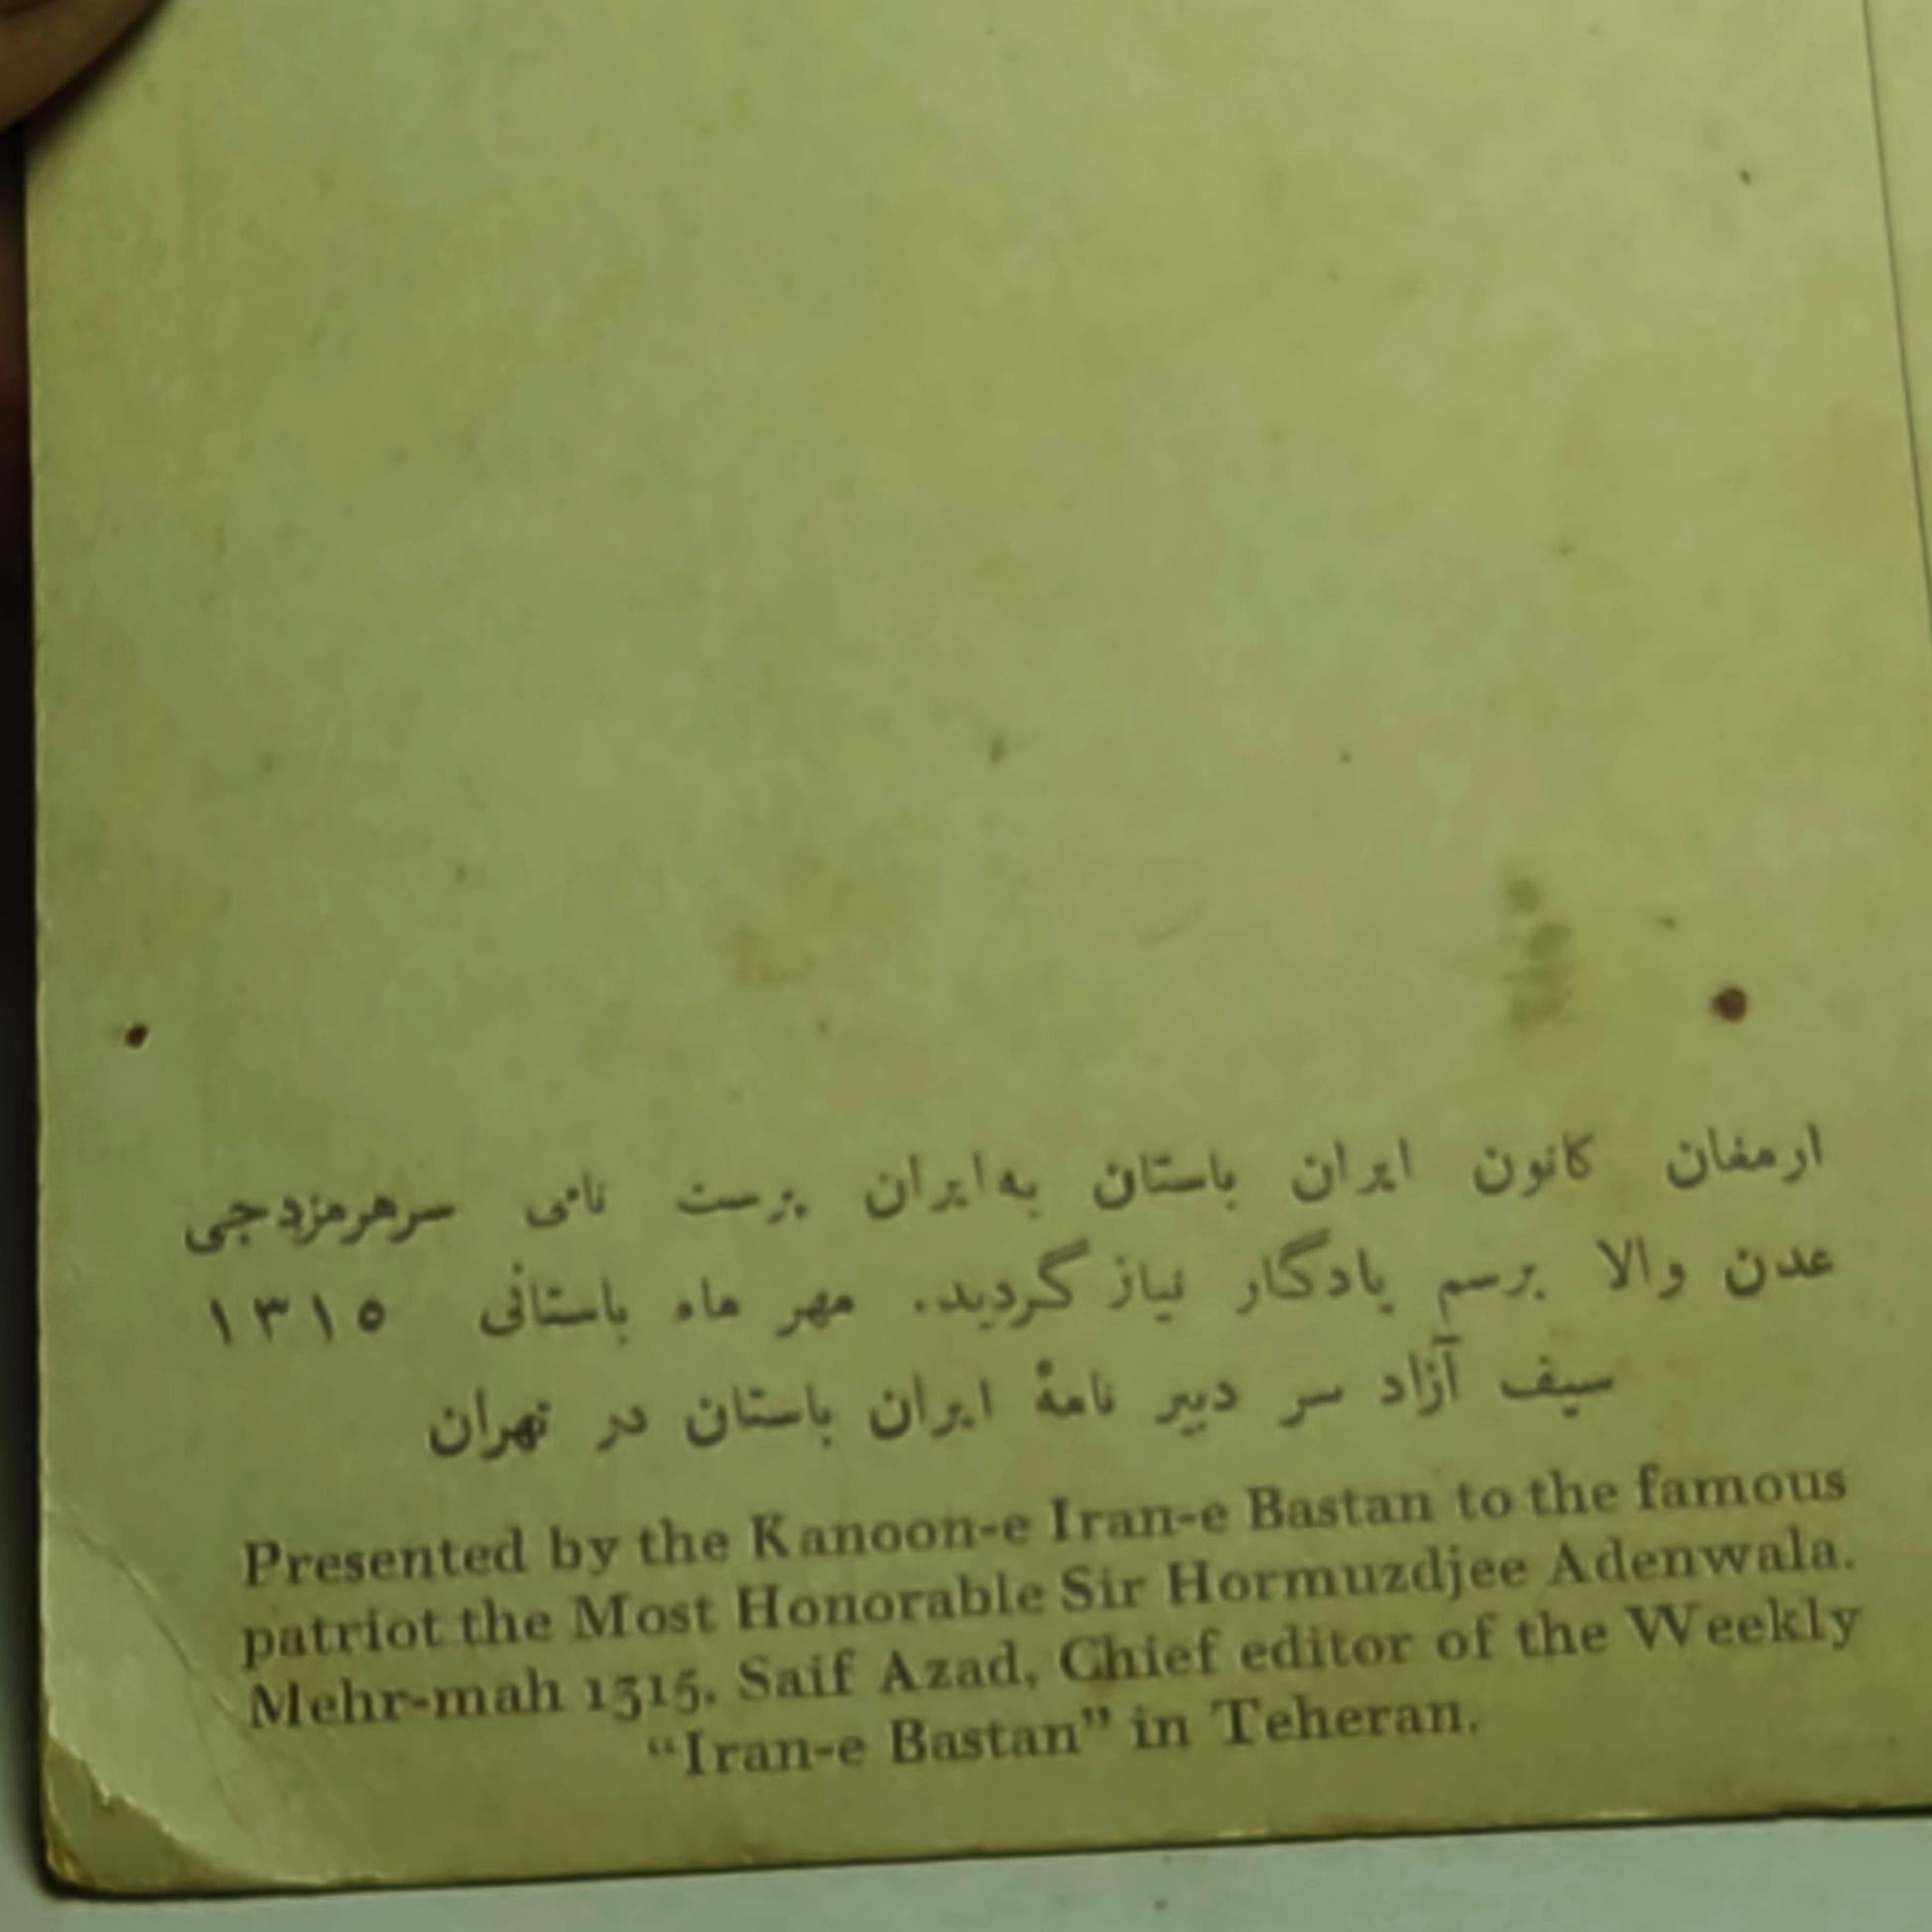 ارمغان کانون ایران باستان به‌ایران پرست نامی سرهرمزدجی
عدن والا برسم یادگار نیاز گردید. مهر ماه باستانی ۱۳۱۵
سیف آزاد سر دبیر نامهٔ ایران باستان در تهران
Presented by the Kanoon-e Iran-e Bastan to the famous
patriot the Most Honorable Sir Hormuzdjee Adenwala.
Mehr-mah 1315. Saif Azad, Chief editor of the Weekly
“Iran-e Bastan” in Teheran.